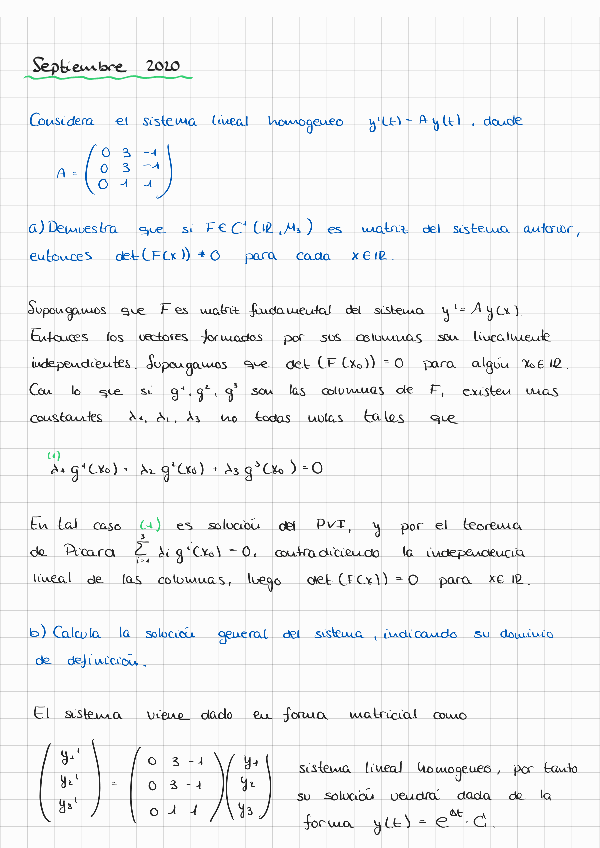 Septiembre 2020
Considera el sistema lineal homogeneo y'(t) = A y(t), donde
A = ( 0 3 -1
0 3 -1
0 1 1 )
a) Demuestra que si F ∈ C¹(IR, M₃) es matriz del sistema anterior,
entonces det(F(x)) ≠ 0 para cada x ∈ IR.
Supongamos que F es matriz fundamental del sistema y' = A y(x).
Entonces los vectores formados por sus columnas son linealmente
independientes. Supongamos que det (F(x₀)) = 0 para algún x₀ ∈ IR.
Con lo que si g¹, g², g³ son las columnas de F, existen unas
constantes λ₁, λ₂, λ₃ no todas nulas tales que
(1)
λ₁ g¹(x₀) + λ₂ g²(x₀) + λ₃ g³(x₀) = 0
En tal caso (1) es solución del PVI, y por el teorema
de Picard ∑³ᵢ₌₁ λᵢ gⁱ(x₀) = 0, contradiciendo la independencia
lineal de las columnas, luego det (F(x)) = 0 para x ∈ IR.
b) Calcula la solución general del sistema, indicando su dominio
de definición.
El sistema viene dado en forma matricial como
( y₁' ) = ( 0 3 -1 ) ( y₁ ) sistema lineal homogeneo, por tanto
( y₂' ) ( 0 3 -1 ) ( y₂ ) su solución vendrá dada de la
( y₃' ) ( 0 1 1 ) ( y₃ ) forma y(t) = e^{At} · C.